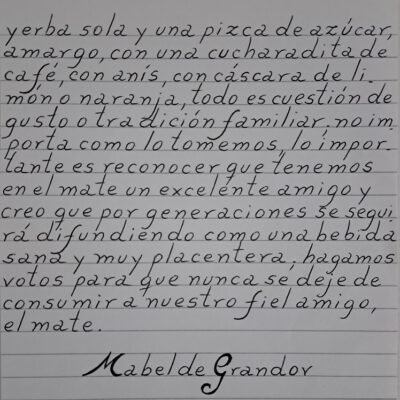 yerba sola y una pizca de azúcar,
amargo, con una cucharadita de
café, con anís, con cáscara de li-
món o naranja, todo es cuestión de
gusto o tradición familiar. no im-
porta como lo tomemos, lo impor-
tante es reconocer que tenemos
en el mate un excelente amigo y
creo que por generaciones se segui
rá difundiendo como una bebida
sana y muy placentera, hagamos
votos para que nunca se deje de
consumir a nuestro fiel amigo,
el mate.
Mabel de Grandov